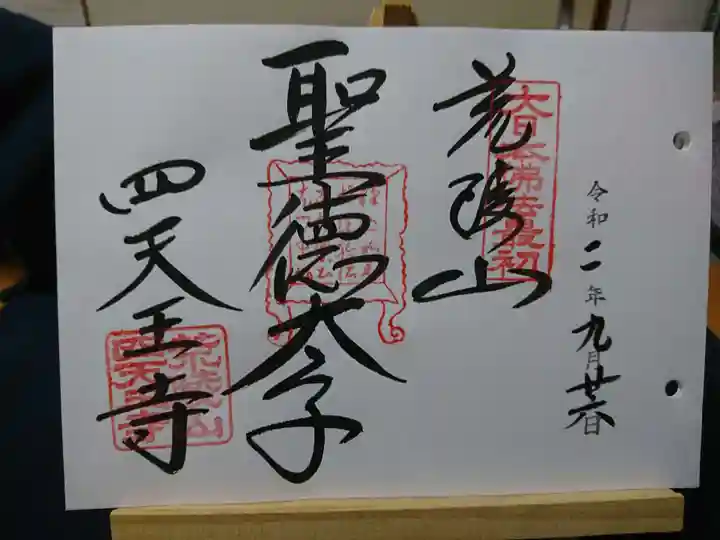 令和二年九月廿六日
大日本佛法最初
荒陵山
聖德太子
四天王寺
荒陵山
四天王寺